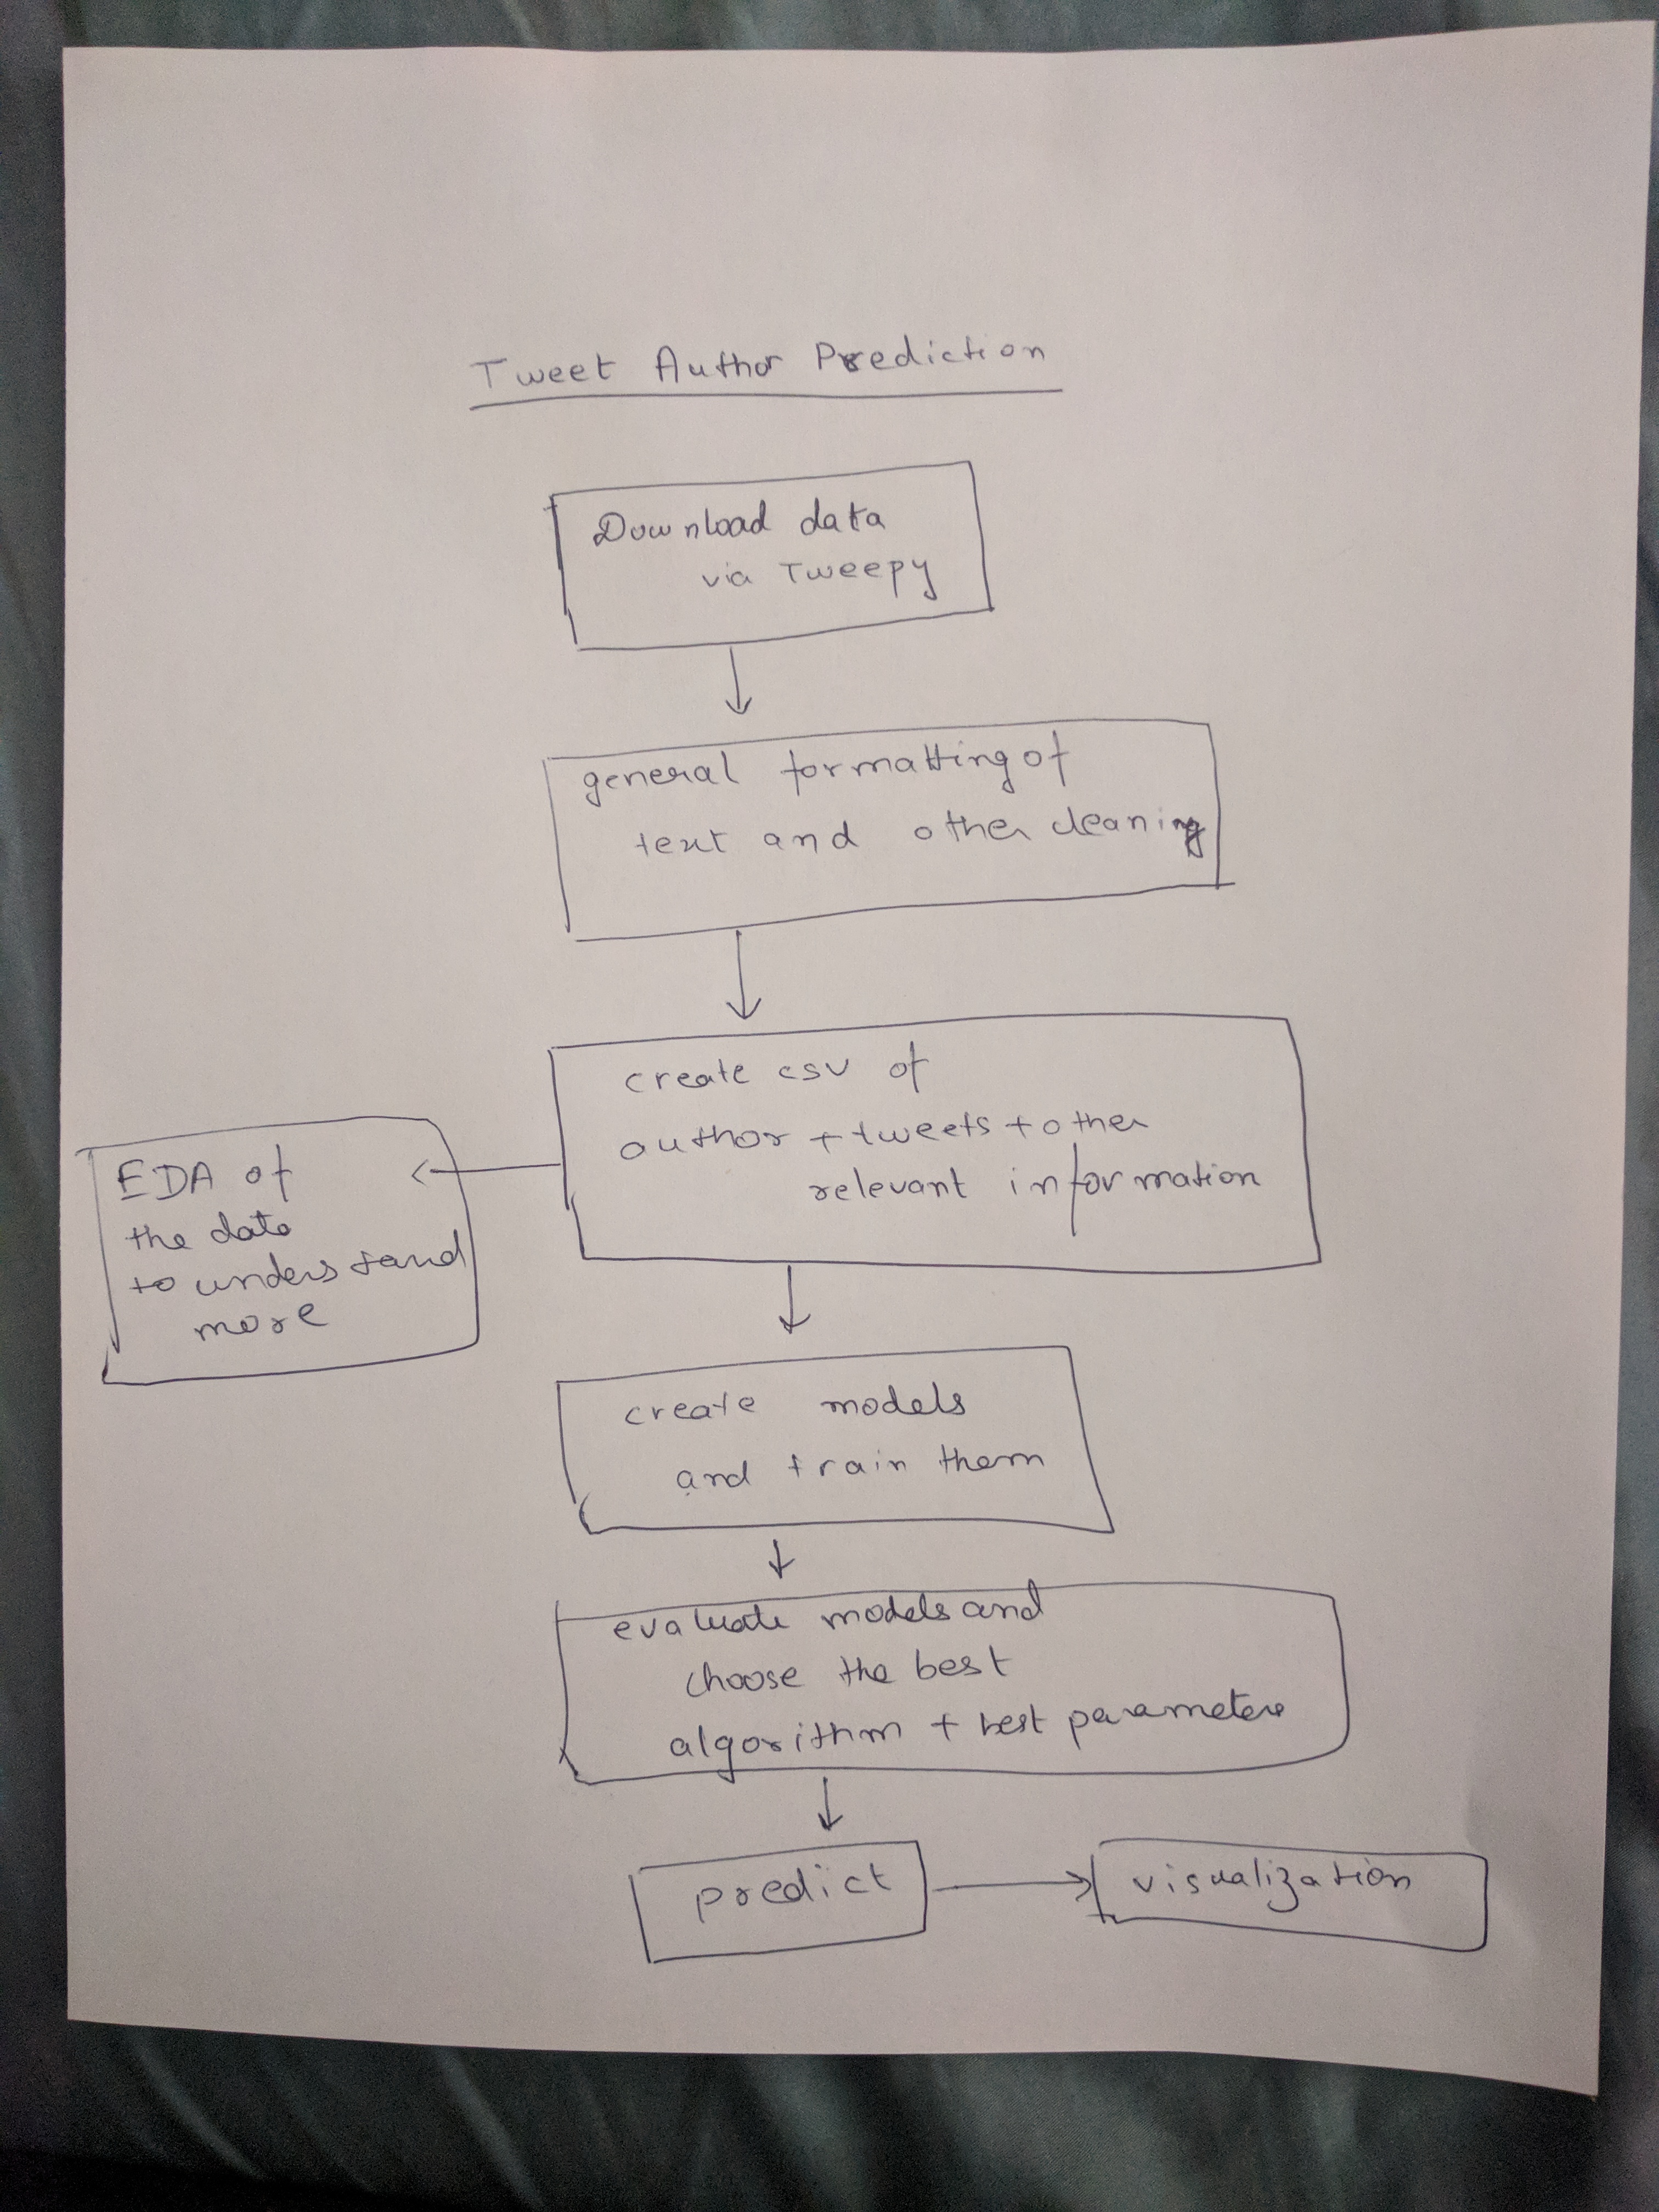 Tweet Author Prediction
Download data
via Tweepy
general formatting of
text and other cleaning
create csv of
author + tweets + other
relevant information
EDA of
the data
to understand
more
create models
and train them
evaluate models and
choose the best
algorithm + best parameters
predict
visualization